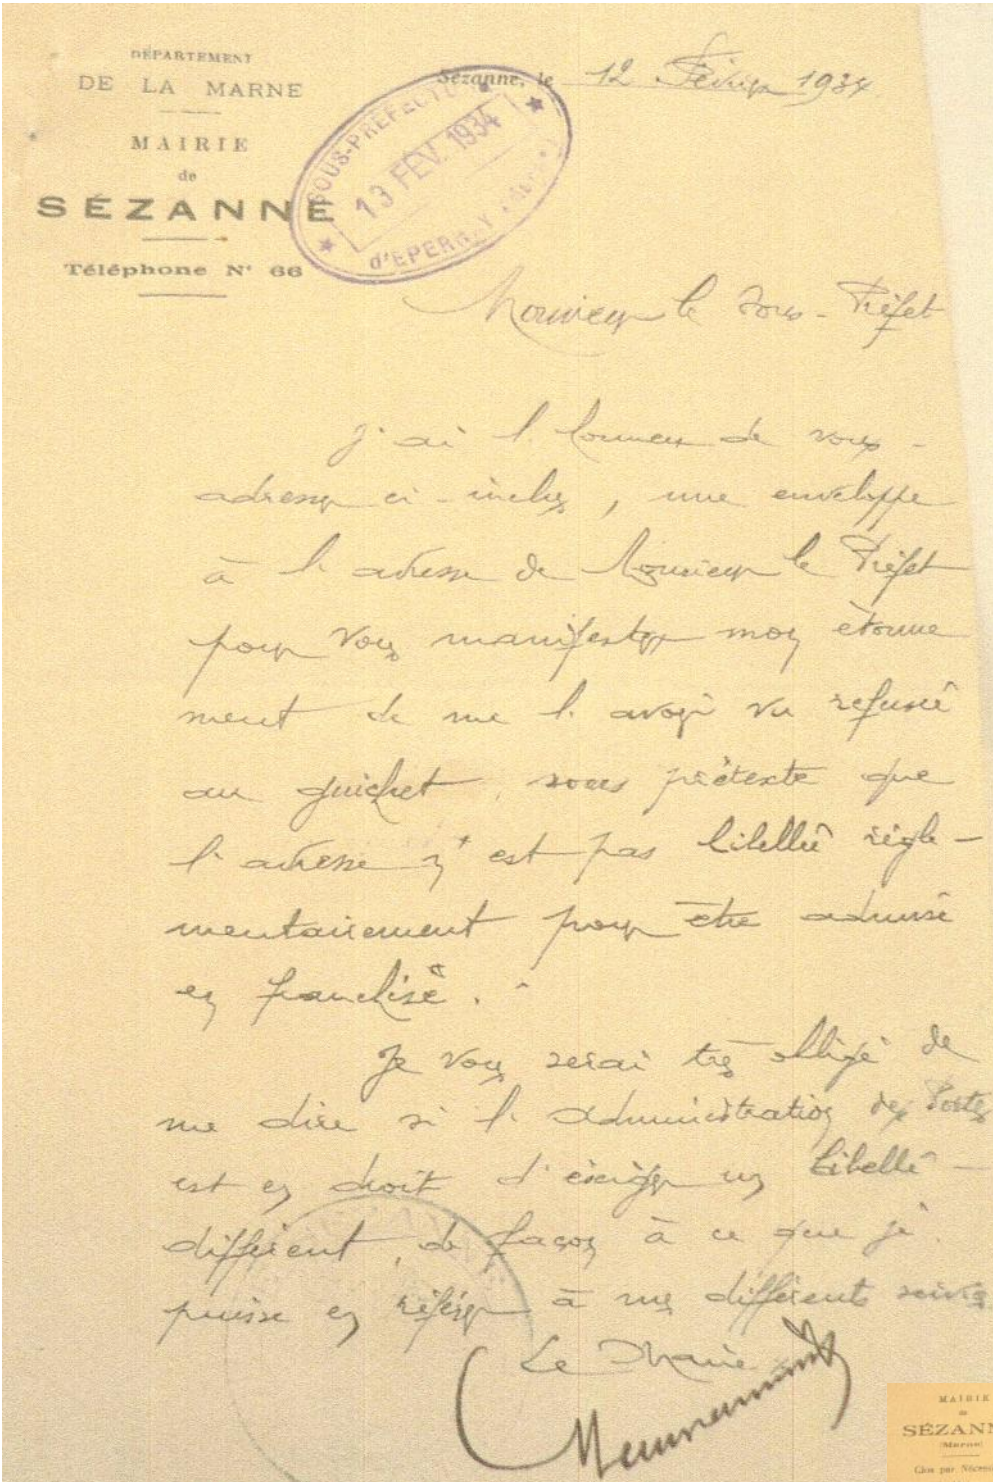 DÉPARTEMENT
DE LA MARNE
MAIRIE
de
SÉZANNE
Téléphone N° 66
Sézanne, le 12 Février 1934
SOUS-PRÉFECTURE
13 FEV. 1934
d'EPERNAY (Marne)
Monsieur le Sous-Préfet
J'ai l'honneur de vous
adresser ci-inclus, une enveloppe
à l'adresse de Monsieur le Préfet
pour vous manifester mon étonne
ment de me l'avoir vu refusée
au guichet, sous prétexte que
l'adresse n'est pas libellée règle-
mentairement pour être admise
en franchise.
Je vous serai très obligé de
me dire si l'administration des Postes
est en droit d'exiger un libellé
différent, de façon à ce que je
puisse en référer à mes différents
Le Maire
MAIRIE
de
SÉZANN
(Marne)
Clos par